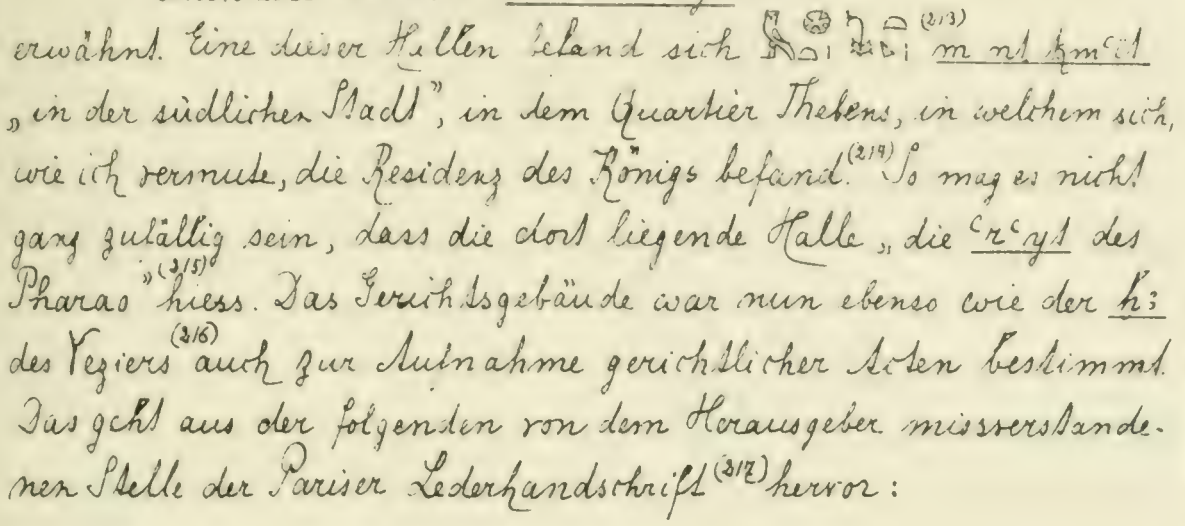 erwähnt. Eine dieser Hallen befand sich (213) m nt šmꜥt
„in der südlichen Stadt", in dem Quartier Thebens, in welchem sich,
wie ich vermute, die Residenz des Königs befand.(214) So mag es nicht
ganz zufällig sein, dass die dort liegende Halle „die ꜥrꜥyt des
Pharao"(215) hiess. Das Gerichtsgebäude war nun ebenso wie der ḫꜣ
des Veziers(216) auch zur Aufnahme gerichtlicher Acten bestimmt.
Das geht aus der folgenden von dem Herausgeber missverstande-
nen Stelle der Pariser Lederhandschrift(217) hervor: